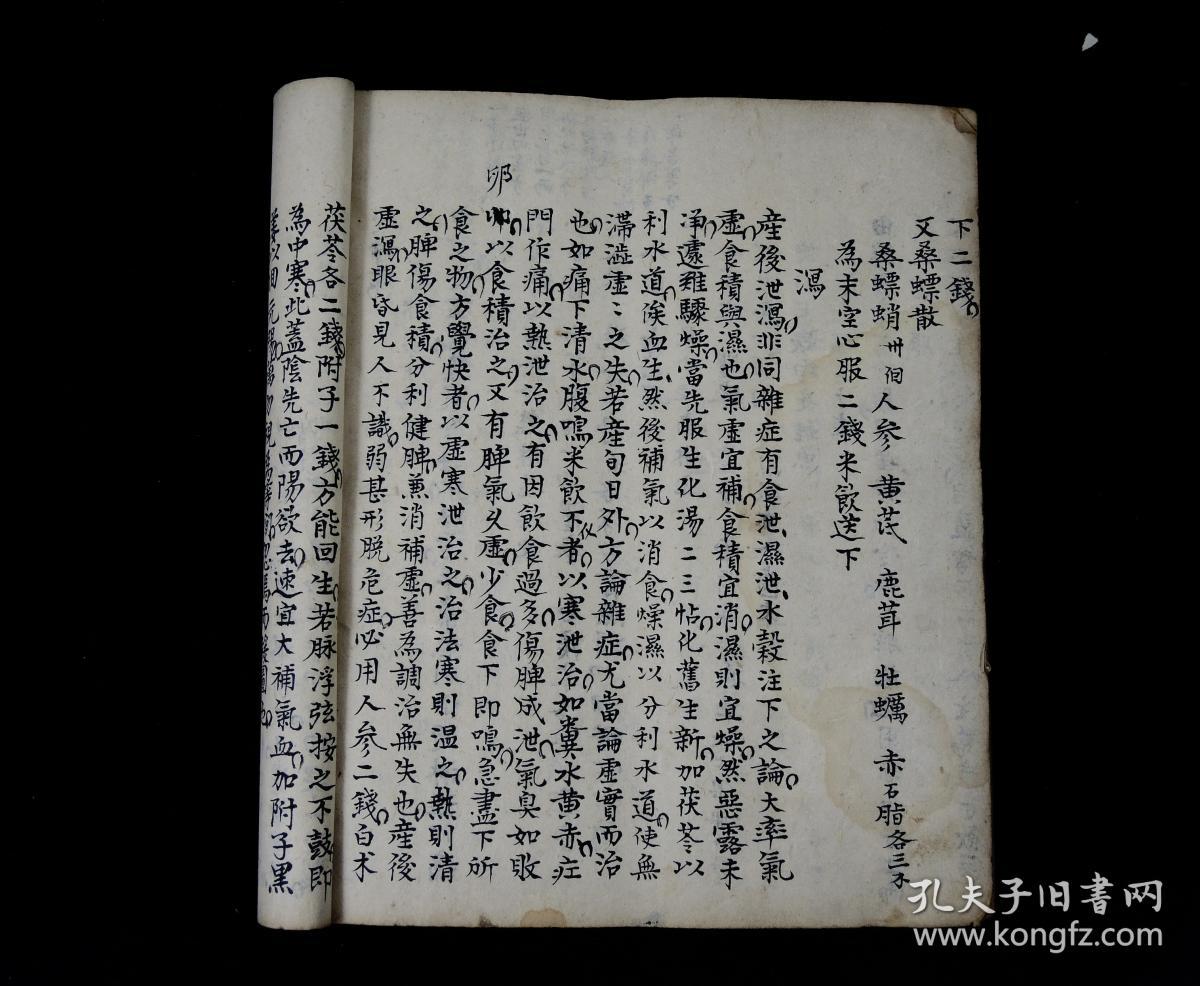 下二錢
又桑螵散
桑螵蛸卅個人參 黃芪 鹿茸 牡蠣 赤石脂各三
為末空心服二錢米飲送下
瀉
產後泄瀉非同雜症有食泄濕泄水穀注下之論大率氣
虛食積與濕也氣虛宜補食積宜消濕則宜燥然惡露未
淨遽難驟燥當先服生化湯二三帖化舊生新加茯苓以
利水道俟血生然後補氣以消食燥濕以分利水道使無
滯澁虛〻之失若產旬日外方論雜症尤當論虛實而治
也如痛下清水腹鳴米飲不化者以寒泄治如糞水黃赤肛
門作痛以熱泄治之有因飲食過多傷脾成泄氣臭如敗
卵
卵以食積治之又有脾氣久虛少食食下即鳴急盡下所
食之物方覺快者以虛寒泄治之治法寒則温之熱則清
之脾傷食積分利健脾兼消補虛善為調治無失也產後
虛瀉眼昏見人不識弱甚形脫危症必用人參二錢白朮
茯苓各二錢附子一錢方能回生若脉浮弦按之不鼓即
為中寒此蓋陰先亡而陽欲去速宜大補氣血加附子黑
孔夫子旧书网
www.kongfz.com